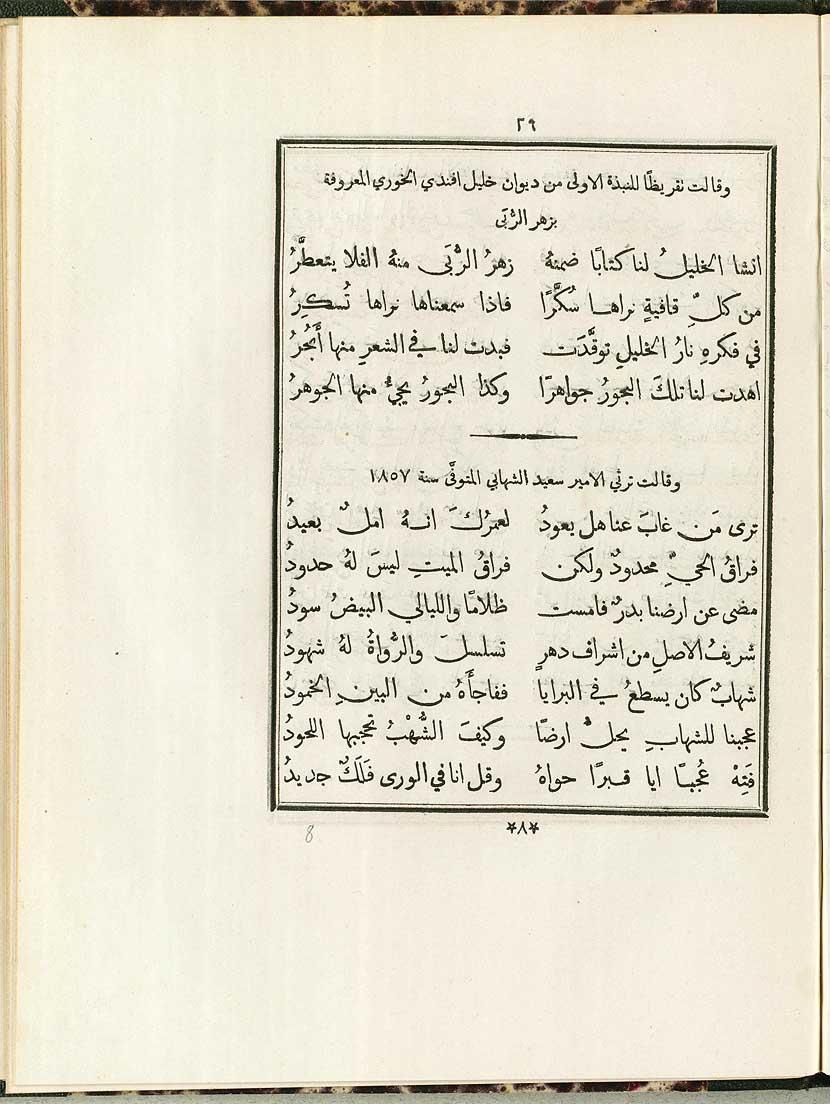 ٢٩
وقالت تقريظًا للنبذة الاولى من ديوان خليل افندي الخوري المعروفة
بزهر الرُّبَى
انشا الخليلُ لنا كتابًا ضمنهُ زهرُ الرُّبَى منهُ الفلا يتعطَّرُ
من كلِّ قافيةٍ نراها سُكَّرًا فاذا سمعناها نراها تُسكِرُ
في فكرهِ نارُ الخليلِ توقَّدَت فبدت لنا في الشعرِ منها أَبحُرُ
اهدت لنا تلكَ البحورُ جواهرًا وكذا البحورُ يجيءُ منها الجوهرُ
وقالت ترثي الامير سعيد الشهابي المتوفَّى سنة ١٨٥٧
ترى مَن غابَ عنا هل يعودُ لعمرُكَ انهُ املٌ بعيدُ
فراقُ الحيِّ محدودٌ ولكن فراقُ الميتِ ليسَ لهُ حدودُ
مضى عن ارضنا بدرٌ فامست ظلامًا والليالي البيضُ سودُ
شريفُ الاصلِ من اشراف دهرٍ تسلسلَ والرُّواةُ لهُ شهودُ
شهابٌ كان يسطعُ في البرايا ففاجأَهُ من البينِ الخمودُ
عجبنا للشهابِ يحلُّ ارضًا وكيفَ الشُّهْبُ تحجبها اللحودُ
فَتِهْ عُجبًا ايا قبرًا حواهُ وقل انا في الورى فَلَكٌ جديدُ
*٨*
8